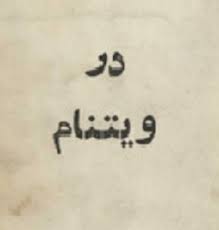 در
ویتنام